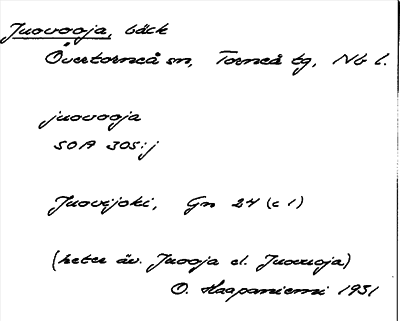 Juovooja, bäck
Övertorneå sn, Torneå tg, Nb l.
juovooja
SOA 305:j
Juovijoki, Gn 24 (c 1)
(heter äv. Juooja el. Juovuoja)
O. Haapaniemi 1931